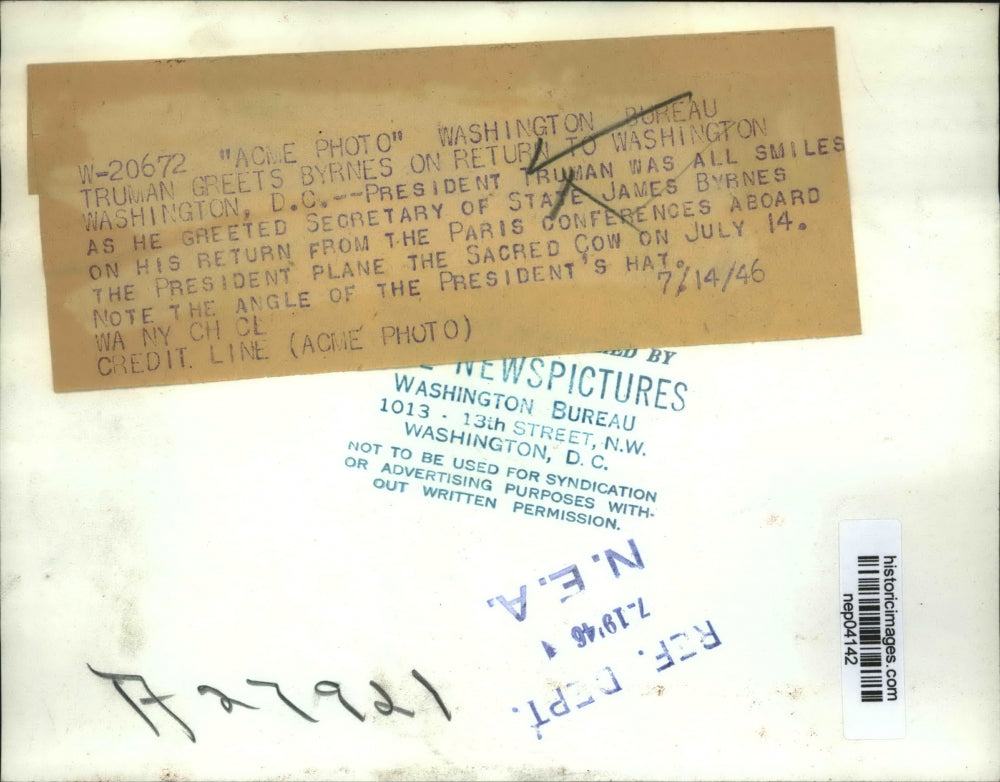 W-20672 "ACME PHOTO" WASHINGTON BUREAU
TRUMAN GREETS BYRNES ON RETURN TO WASHINGTON
WASHINGTON, D.C.--PRESIDENT TRUMAN WAS ALL SMILES
AS HE GREETED SECRETARY OF STATE JAMES BYRNES
ON HIS RETURN FROM THE PARIS CONFERENCES ABOARD
THE PRESIDENT PLANE THE SACRED COW ON JULY 14.
NOTE THE ANGLE OF THE PRESIDENT'S HAT.
WA NY CH CL 7/14/46
CREDIT LINE (ACME PHOTO)
BY
NEWSPICTURES
WASHINGTON BUREAU
1013 - 13th STREET, N.W.
WASHINGTON, D. C.
NOT TO BE USED FOR SYNDICATION
OR ADVERTISING PURPOSES WITH-
OUT WRITTEN PERMISSION.
REF. DEPT.
7-19'46
N.E.A.
A27921
historicimages.com
nep04142